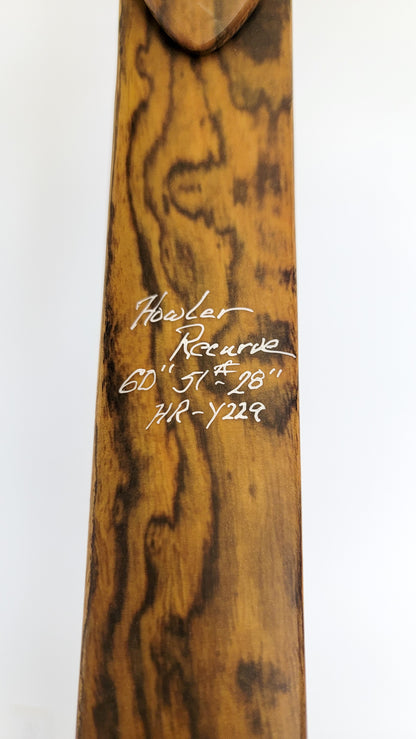 Howler
Recurve
60" 51# - 28"
HR-Y229